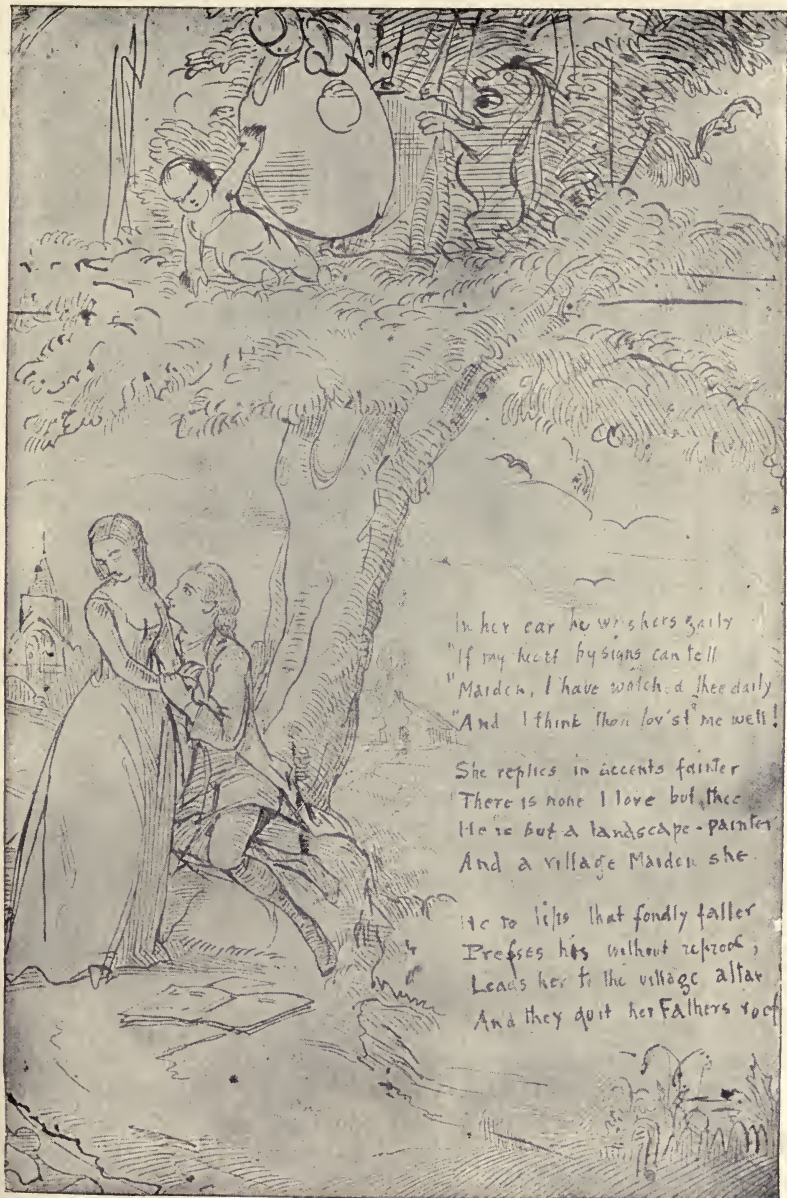 In her ear he whishers gaily
"If my heart by signs can tell
"Maiden, I have watch'd thee daily
"And I think thou lov'st me well!
She replies in accents fainter
There is none I love but thee
He is but a landscape-painter
And a village Maiden she.
He to lips that fondly falter
Presses his without reproof;
Leads her to the village altar
And they quit her Fathers roof